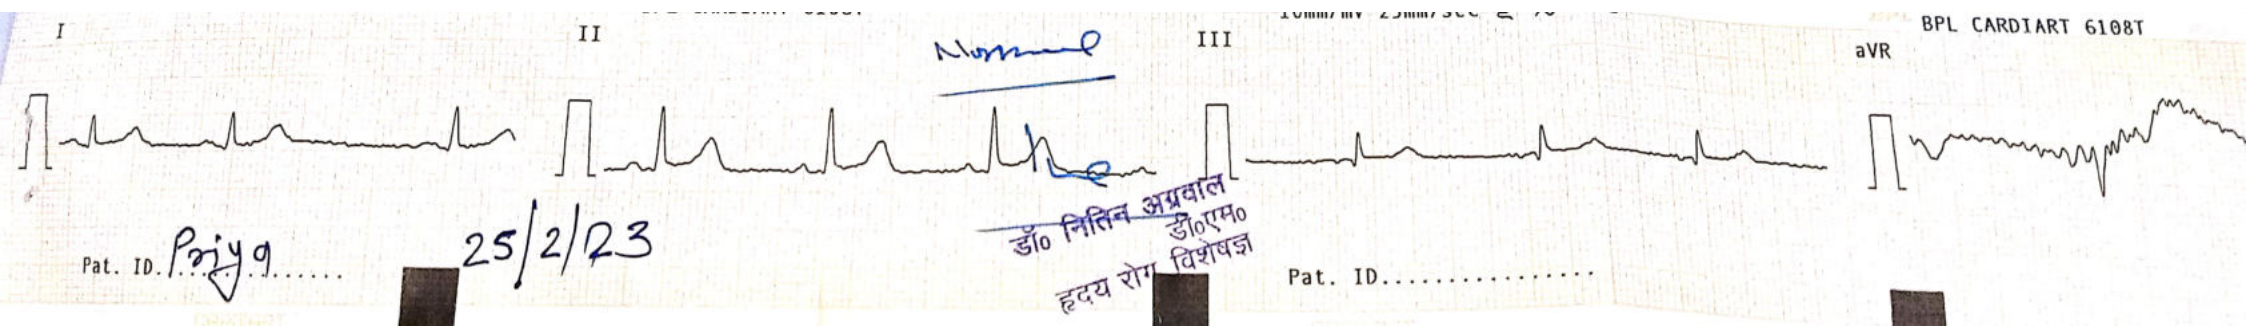 I
II
Normal
III
aVR
BPL CARDIART 6108T
Pat. ID. Priya
25/2/23
डॉ० नितिन अग्रवाल
डी०एम०
हृदय रोग विशेषज्ञ
Pat. ID................